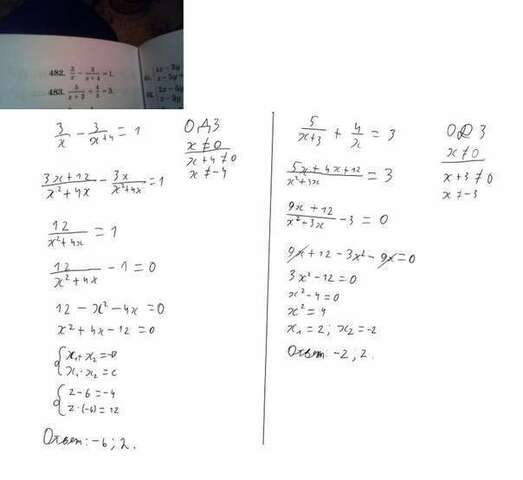 482. 3/x - 3/(x+4) = 1.
483. 5/(x+3) + 4/x = 3.
3/x - 3/(x+4) = 1
ОДЗ
x ≠ 0
x+4 ≠ 0
x ≠ -4
(3x+12)/(x²+4x) - 3x/(x²+4x) = 1
12/(x²+4x) = 1
12/(x²+4x) - 1 = 0
12 - x² - 4x = 0
x² + 4x - 12 = 0
x₁+x₂ = -b
x₁·x₂ = c
2-6 = -4
2·(-6) = 12
Ответ: -6; 2.
5/(x+3) + 4/x = 3
ОДЗ
x ≠ 0
x+3 ≠ 0
x ≠ -3
(5x+4x+12)/(x²+3x) = 3
(9x+12)/(x²+3x) - 3 = 0
9x+12-3x²-9x=0
3x²-12=0
x²-4=0
x²=4
x₁=2; x₂=-2
Ответ: -2; 2.